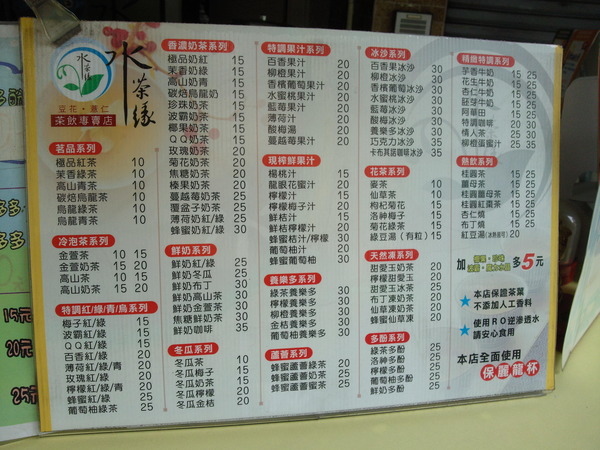 水茶緣
水茶緣
豆花・薏仁
茶飲專賣店
茗品系列
極品紅茶 10
茉香綠茶 10
高山青茶 10
碳焙烏龍茶 10
烏龍綠茶 10
烏龍青茶 10
冷泡茶系列
金萱茶 10 15
金萱奶茶 15 20
高山茶 10 15
高山奶茶 15 20
特調紅/綠/青/烏系列
梅子紅/綠 15
波霸紅/綠 15
QQ紅/綠 15
百香紅/綠 20
薄荷紅/綠/青 20
玫瑰紅/綠 20
檸檬紅/綠/青 20
蜂蜜紅/綠 25
葡萄柚綠茶 25
香濃奶茶系列
極品奶紅 15
茉香奶綠 15
高山奶青 15
碳焙烏龍奶 15
珍珠奶茶 15
波霸奶茶 15
椰果奶茶 15
QQ奶茶 15
玫瑰奶茶 20
菊花奶茶 20
焦糖奶茶 20
榛果奶茶 20
蔓越莓奶茶 25
覆盆子奶茶 25
薄荷奶紅/綠 25
蜂蜜奶紅/綠 30
鮮奶系列
鮮奶紅/綠 25
鮮奶冬瓜 25
鮮奶布丁 30
鮮奶高山茶 30
鮮奶金萱茶 30
鮮奶焦糖 30
鮮奶咖啡 35
冬瓜系列
冬瓜茶 10
冬瓜梅子 15
冬瓜奶茶 15
冬瓜檸檬 20
冬瓜金桔 20
特調果汁系列
百香果汁 20
柳橙果汁 20
香檳葡萄果汁 20
水蜜桃果汁 20
藍莓果汁 20
薄荷汁 20
酸梅湯 20
蔓越莓果汁 20
現榨鮮果汁
楊桃汁 15
龍眼花蜜汁 20
檸檬汁 20
檸檬梅子汁 20
鮮桔汁 20
鮮桔檸檬汁 20
蜂蜜桔汁/檸檬 30
葡萄柚汁 30
蜂蜜葡萄柚 30
養樂多系列
綠茶養樂多 30
檸檬養樂多 30
柳橙養樂多 30
金桔養樂多 30
葡萄柚養樂多 30
蘆薈系列
蜂蜜蘆薈綠茶 20
蜂蜜蘆薈奶茶 25
蜂蜜蘆薈檸檬 25
冰沙系列
百香果冰沙 30
柳橙冰沙 30
香檳葡萄冰沙 30
水蜜桃冰沙 30
藍莓冰沙 30
薄荷冰沙 30
酸梅冰沙 30
養樂多冰沙 35
巧克力冰沙 35
卡布其諾咖啡冰沙 35
花茶系列
麥茶 10
仙草茶 10
枸杞菊花 15
洛神梅子 15
菊花綠茶 15
綠豆湯(有粒) 15
天然凍系列
甜愛玉奶茶 20
檸檬甜愛玉 20
甜愛玉冰茶 20
布丁凍奶茶 20
仙草凍奶茶 20
蜂蜜仙草凍 20
多酚系列
綠茶多酚 20
洛神多酚 20
檸檬多酚 25
葡萄柚多酚 25
鮮奶多酚 25
精緻特調系列
芋香牛奶 15 25
花生牛奶 15 25
杏仁牛奶 15 25
胚芽牛奶 15 25
阿華田 15 25
特調咖啡 20 30
情人茶 25 30
柳橙蛋蜜汁 25 30
熱飲系列
桂圓茶 15 25
薑母茶 15 25
桂圓薑母茶 15 25
桂圓紅棗茶 15 25
杏仁燒 15 25
布丁燒 15 25
紅豆湯(冰熱皆可) 20
加 多5元
★ 本店保證茶葉
不添加人工香料
★ 使用RO逆滲透水
請安心食用
本店全面使用
保麗龍杯
15元
20元
25元